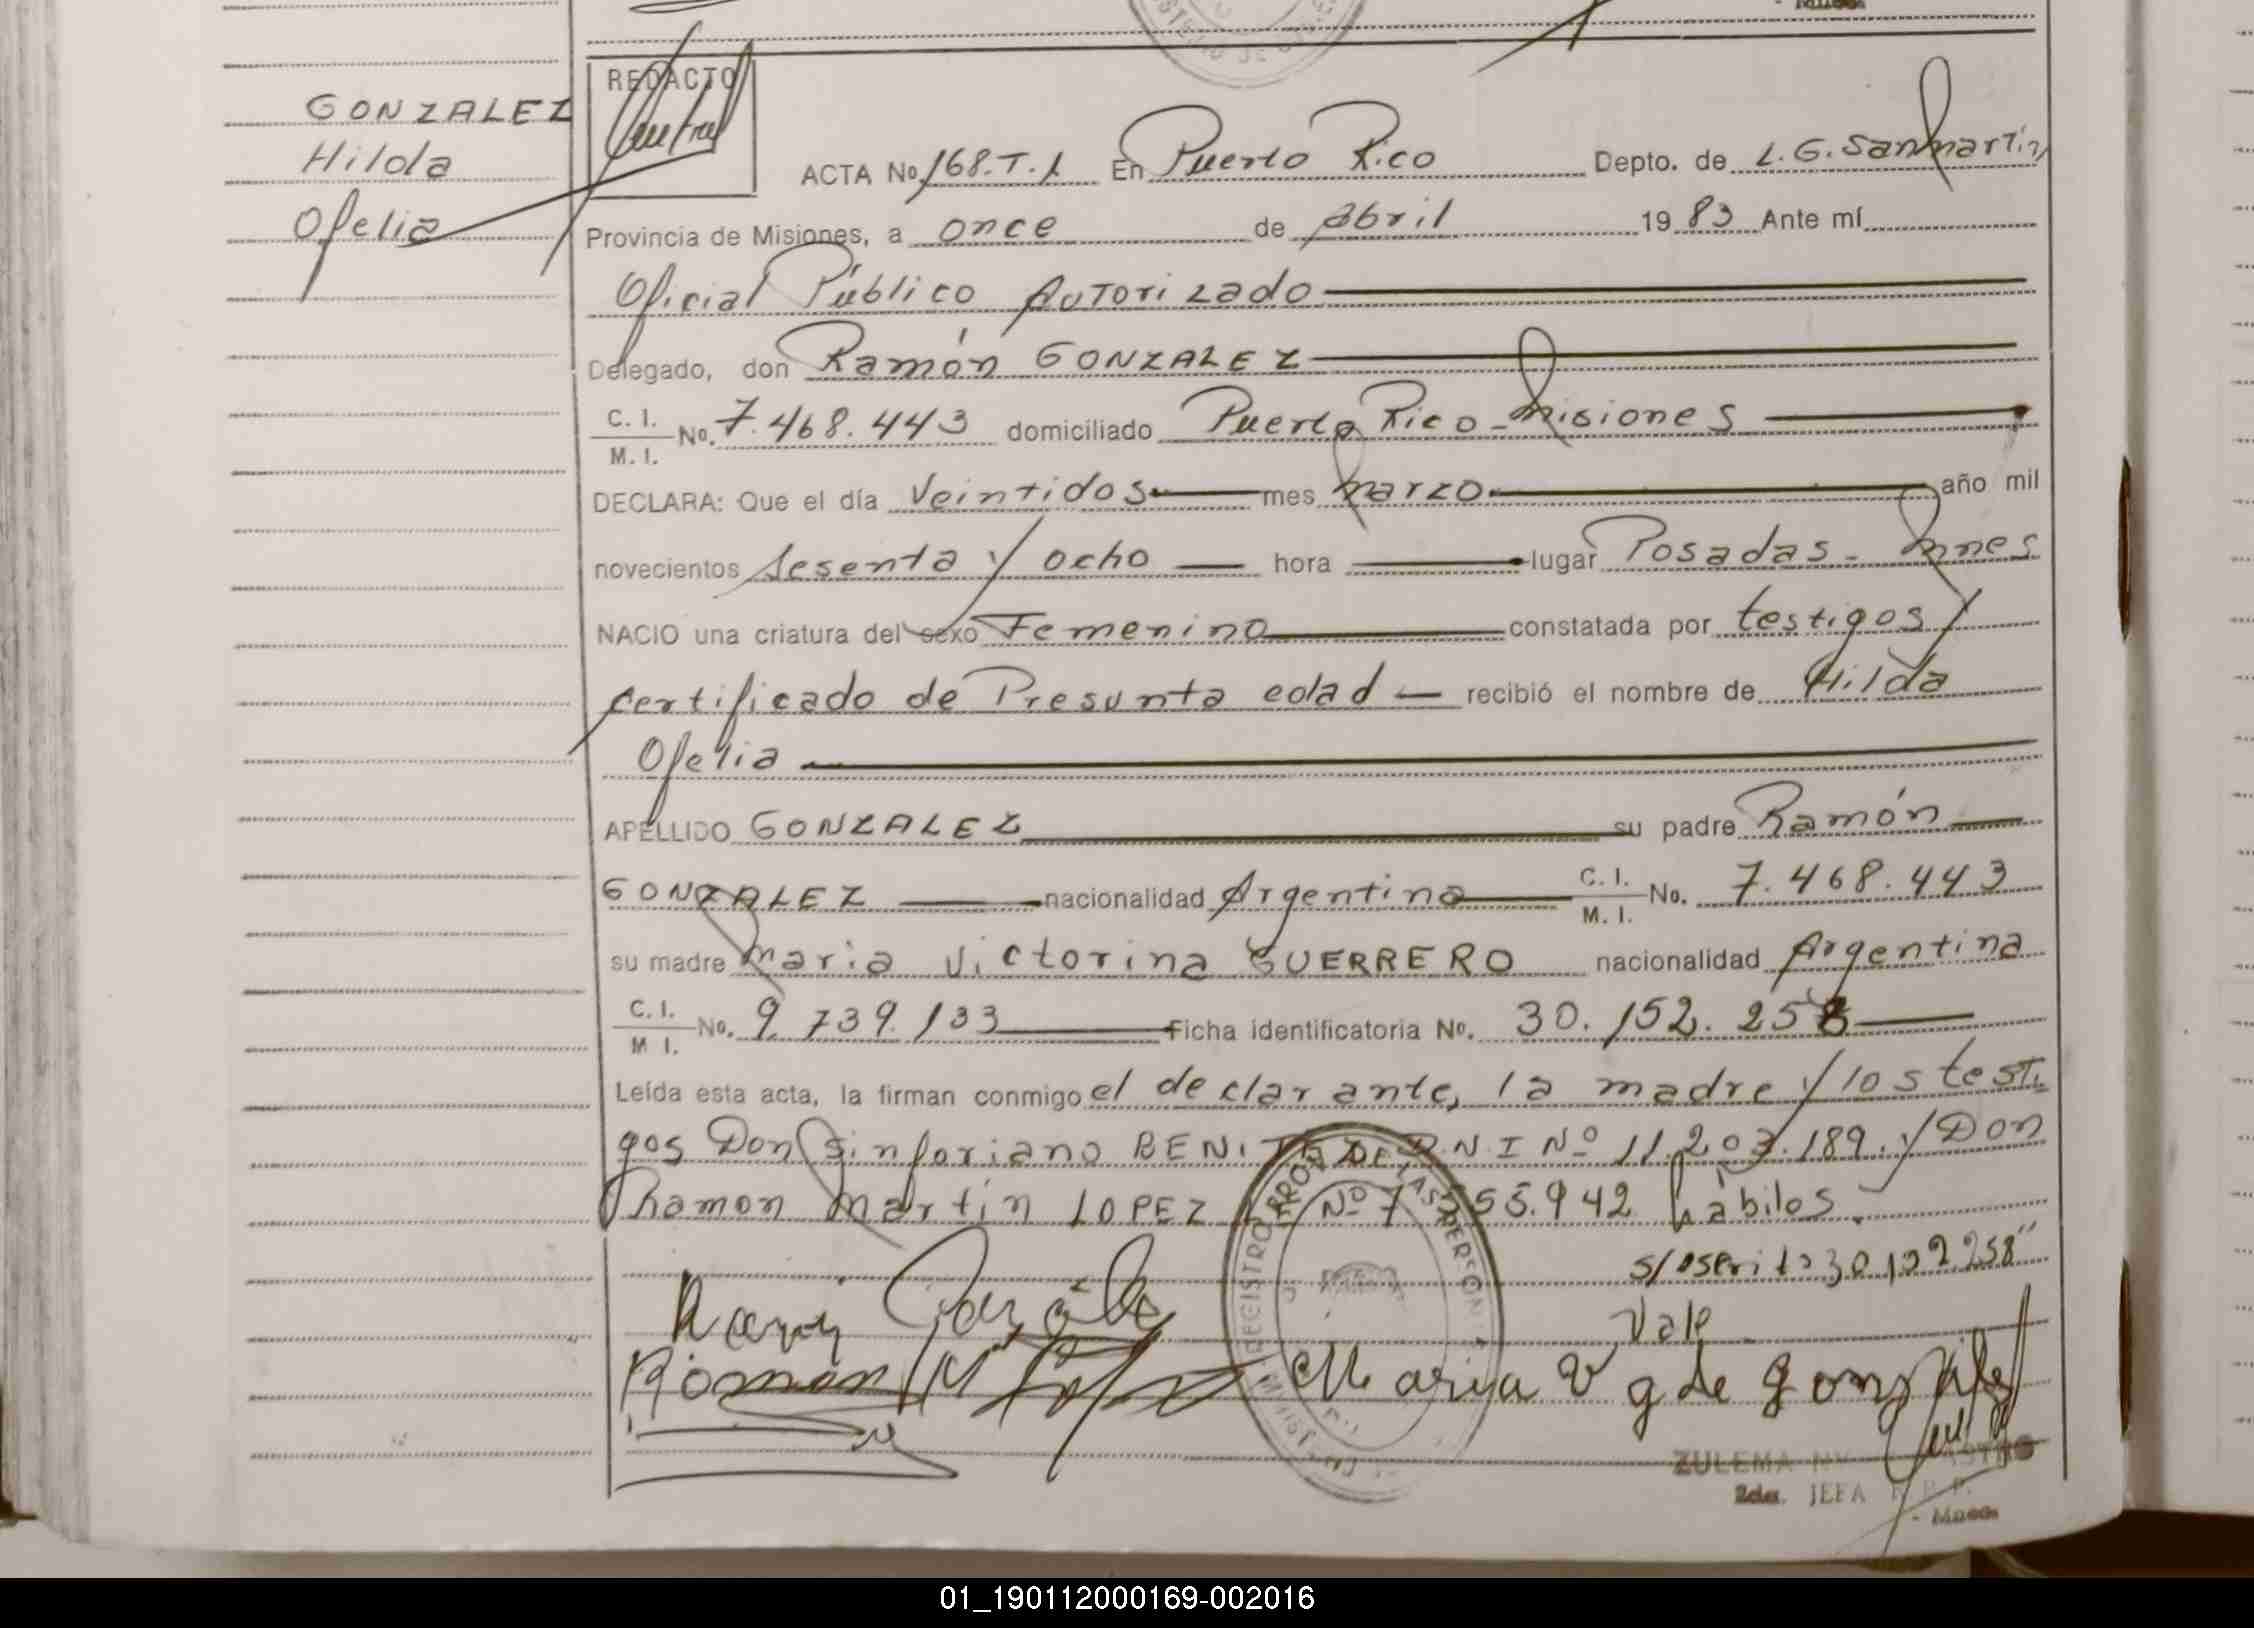 GONZALEZ
Hilda
Ofelia
REDACTO
ACTA No 168. T. 1 En Puerto Rico Depto. de L. G. San Martín
Provincia de Misiones, a once de abril 19 83 Ante mí
Oficial Público Autorizado
Delegado, don Ramón GONZALEZ
C. I.
M. I.
No. 7.468.443 domiciliado Puerto Rico - Misiones
DECLARA: Que el día Veintidos mes Marzo año mil
novecientos sesenta y ocho hora lugar Posadas - Mnes
NACIO una criatura del sexo Femenino constatada por testigos y
certificado de Presunta edad recibió el nombre de Hilda
Ofelia
APELLIDO GONZALEZ su padre Ramón
GONZALEZ nacionalidad Argentino C. I. M. I. No. 7.468.443
su madre Maria Victorina GUERRERO nacionalidad Argentina
C. I.
M I.
No. 9.739.133 Ficha identificatoria No. 30.152.258
Leída esta acta, la firman conmigo el declarante, la madre y los testi-
gos Don Sinforiano BENITEZ D.N.I Nº 11.203.189. y Don
Ramon Martín LOPEZ Nº 7.555.942 habiles.
Vale
Roman M
Maria V g de Gonzalez
ZULEMA
JEFA
01_190112000169-002016